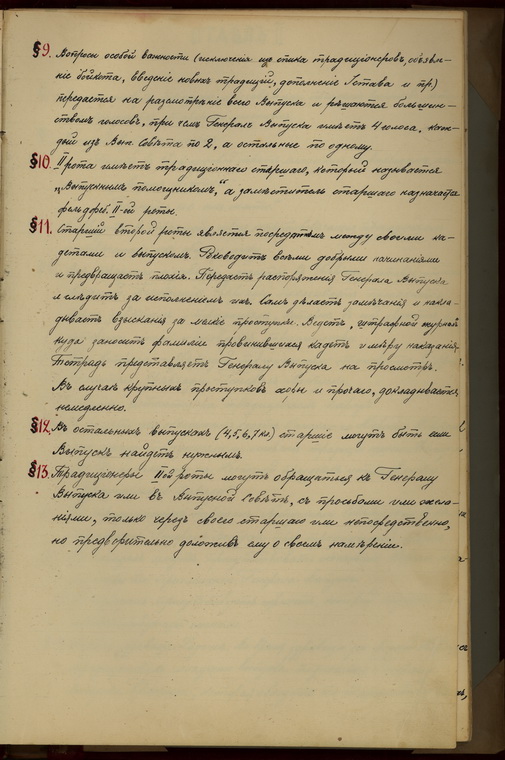 §9. Вопросы особой важности (исключенія изъ списка традиціонеровъ, объявле-
ніе бойкота, введеніе новыхъ традицій, дополненіе Устава и пр.)
передается на разсмотрѣніе всего Выпуска и рѣшаются большин-
ствомъ голосовъ, при чемъ Генералъ Выпуска имѣетъ 4 голоса, каж-
дый изъ Вып. Совѣта по 2, а остальные по одному.
§10. II рота имѣетъ традиціоннаго старшаго, который называется
„Выпускнымъ помощникомъ", а замѣститель старшаго назначается
фельдфеб. II-ой роты.
§11. Старшій второй роты является посредникомъ между своими ка-
детами и выпускомъ. Руководитъ всѣми добрыми начинаніями
и предвращаетъ плохія. Передаетъ распоряженія Генерала Выпуска
и слѣдитъ за исполненіемъ ихъ. Самъ дѣлаетъ замѣчанія и накла-
дываетъ взысканія за мелкіе проступки. Ведетъ „штрафной журналъ
куда заноситъ фамиліе провинившихся кадетъ и мѣру наказанія.
Тетрадь представляетъ Генералу Выпуска на просмотръ.
Въ случаѣ крупныхъ проступковъ, ссоры и прочаго, докладываетъ
немедленно.
§12. Въ остальныхъ выпускахъ (4,5,6,7 кл) старшіе могутъ быть если
Выпускъ найдетъ нужнымъ.
§13. Традиціонеры II ой роты могутъ обращаться къ Генералу
Выпуска или въ Выпускной Совѣтъ, съ просьбами или жела-
ніями, только черезъ своего старшаго или непосредственно,
но предворительно доложивъ ему о своемъ намѣреніи.